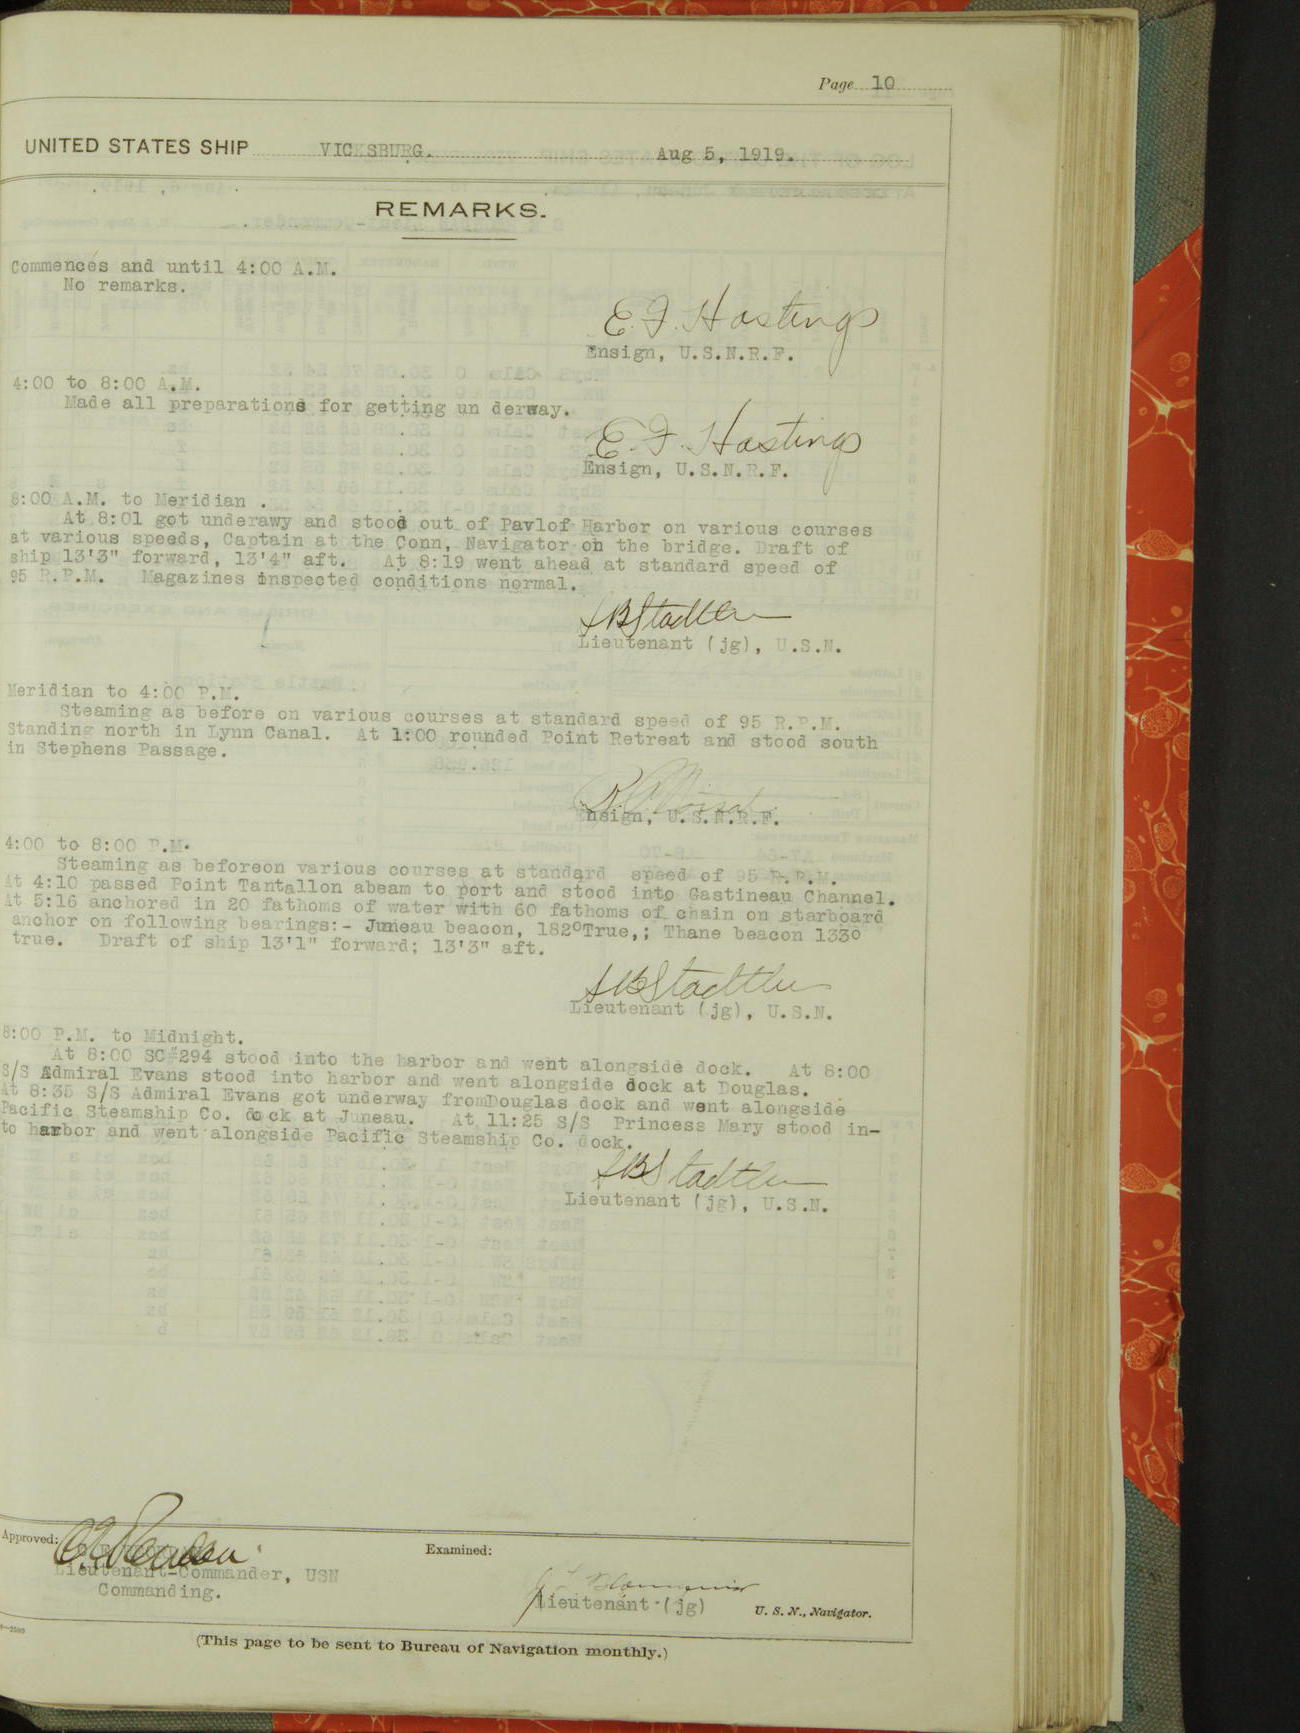 Page 10
UNITED STATES SHIP VICKSBURG. Aug 5, 1919.
REMARKS.
Commences and until 4:00 A.M.
No remarks.
E. F. Hastings
Ensign, U.S.N.R.F.
4:00 to 8:00 A.M.
Made all preparations for getting un derway.
E. F. Hastings
Ensign, U.S.N.R.F.
8:00 A.M. to Meridian .
At 8:01 got underawy and stood out of Pavlof Harbor on various courses
at various speeds, Captain at the Conn, Navigator on the bridge. Draft of
ship 13'3" forward, 13'4" aft. At 8:19 went ahead at standard speed of
95 R.P.M. Magazines inspected conditions normal.
Lieutenant (jg), U.S.N.
Meridian to 4:00 P.M.
Steaming as before on various courses at standard speed of 95 R.P.M.
Standing north in Lynn Canal. At 1:00 rounded Point Retreat and stood south
in Stephens Passage.
Ensign, U.S.N.R.F.
4:00 to 8:00 P.M.
Steaming as beforeon various courses at standard speed of 95 R.P.M.
At 4:10 passed Point Tantallon abeam to port and stood into Gastineau Channel.
At 5:16 anchored in 20 fathoms of water with 60 fathoms of chain on starboard
anchor on following bearings:- Juneau beacon, 182°True,; Thane beacon 133°
true. Draft of ship 13'1" forward; 13'3" aft.
Lieutenant (jg), U.S.N.
8:00 P.M. to Midnight.
At 8:00 SC#294 stood into the harbor and went alongside dock. At 8:00
S/S Admiral Evans stood into harbor and went alongside dock at Douglas.
At 8:35 S/S Admiral Evans got underway fromDouglas dock and went alongside
Pacific Steamship Co. dock at Juneau. At 11:25 S/S Princess Mary stood in-
to harbor and went alongside Pacific Steamship Co. dock.
Lieutenant (jg), U.S.N.
Approved:
Examined:
Lieutenant-Commander, USN
Commanding.
Lieutenant (jg) U. S. N., Navigator.
(This page to be sent to Bureau of Navigation monthly.)